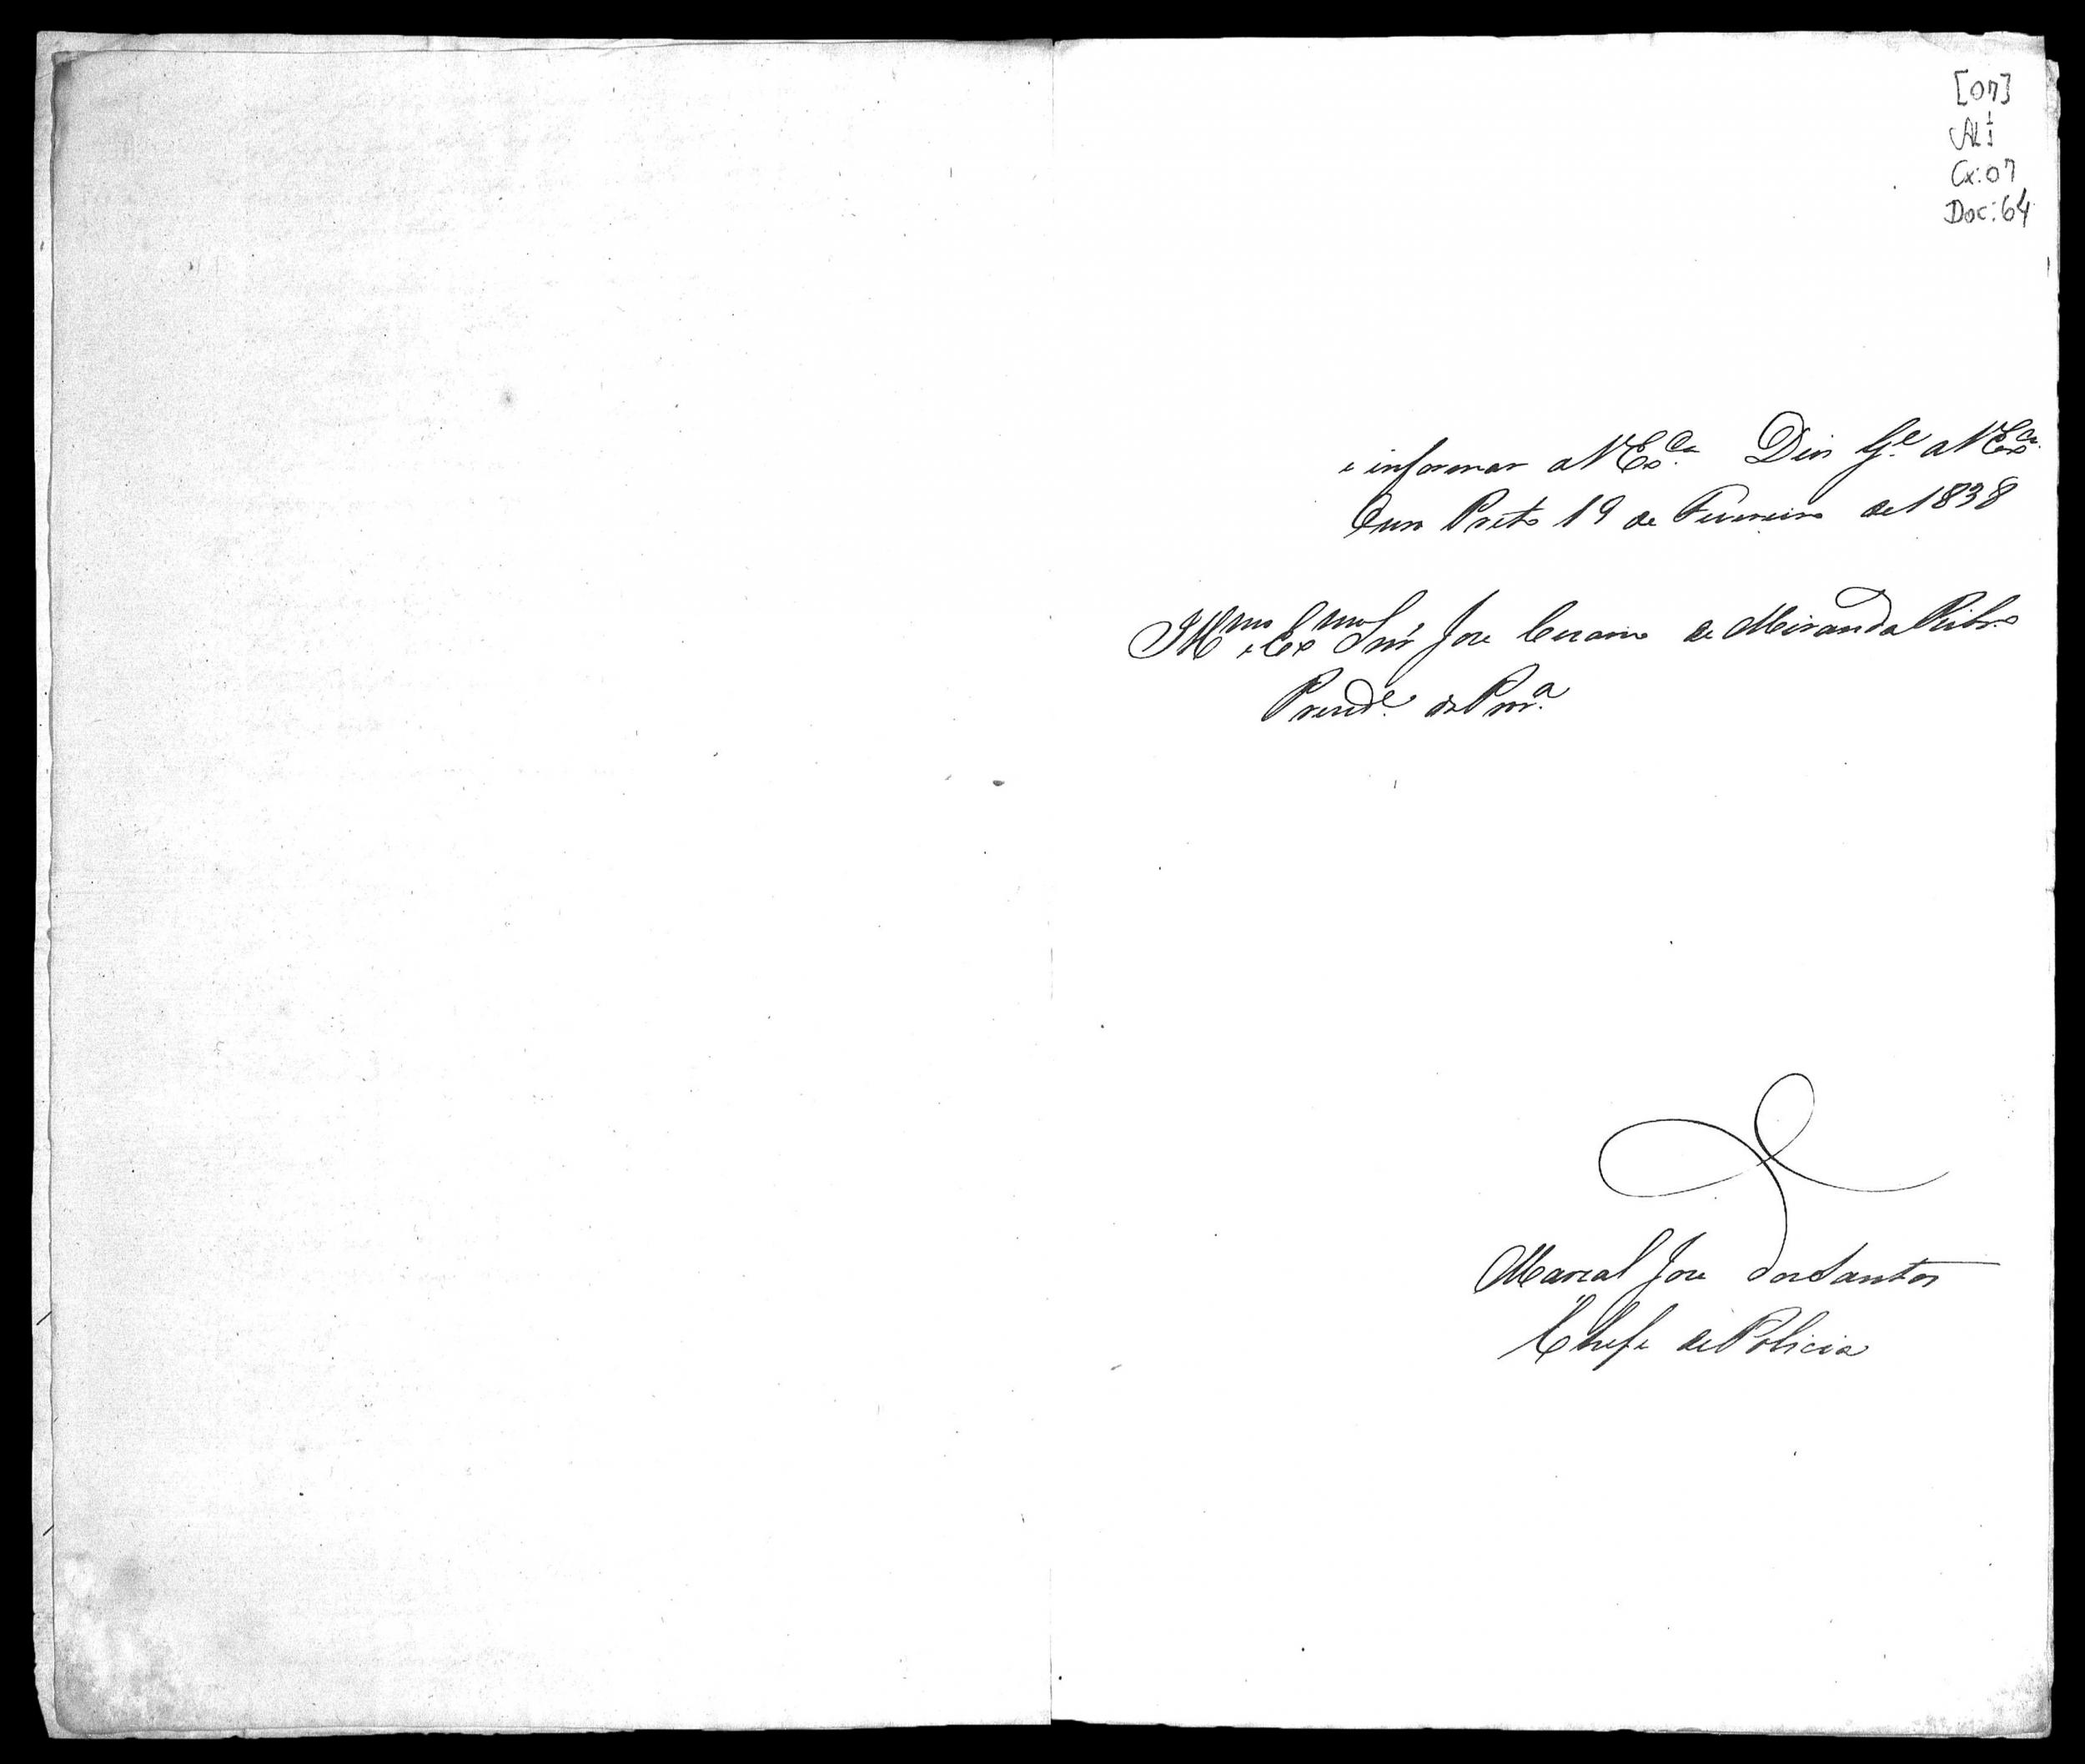 [07]
AL 1
Cx: 07
Doc: 64
e informar a V Ex.ca Deos G.e a V Ex.ca
Ouro Preto 19 de Fevereiro de 1838
Ill.mo e Ex.mo Snr' Jose Cezario de Miranda Ribr.o
Presid.e da Prov.a
Marcal Jose dos Santos
Chefe de Policia